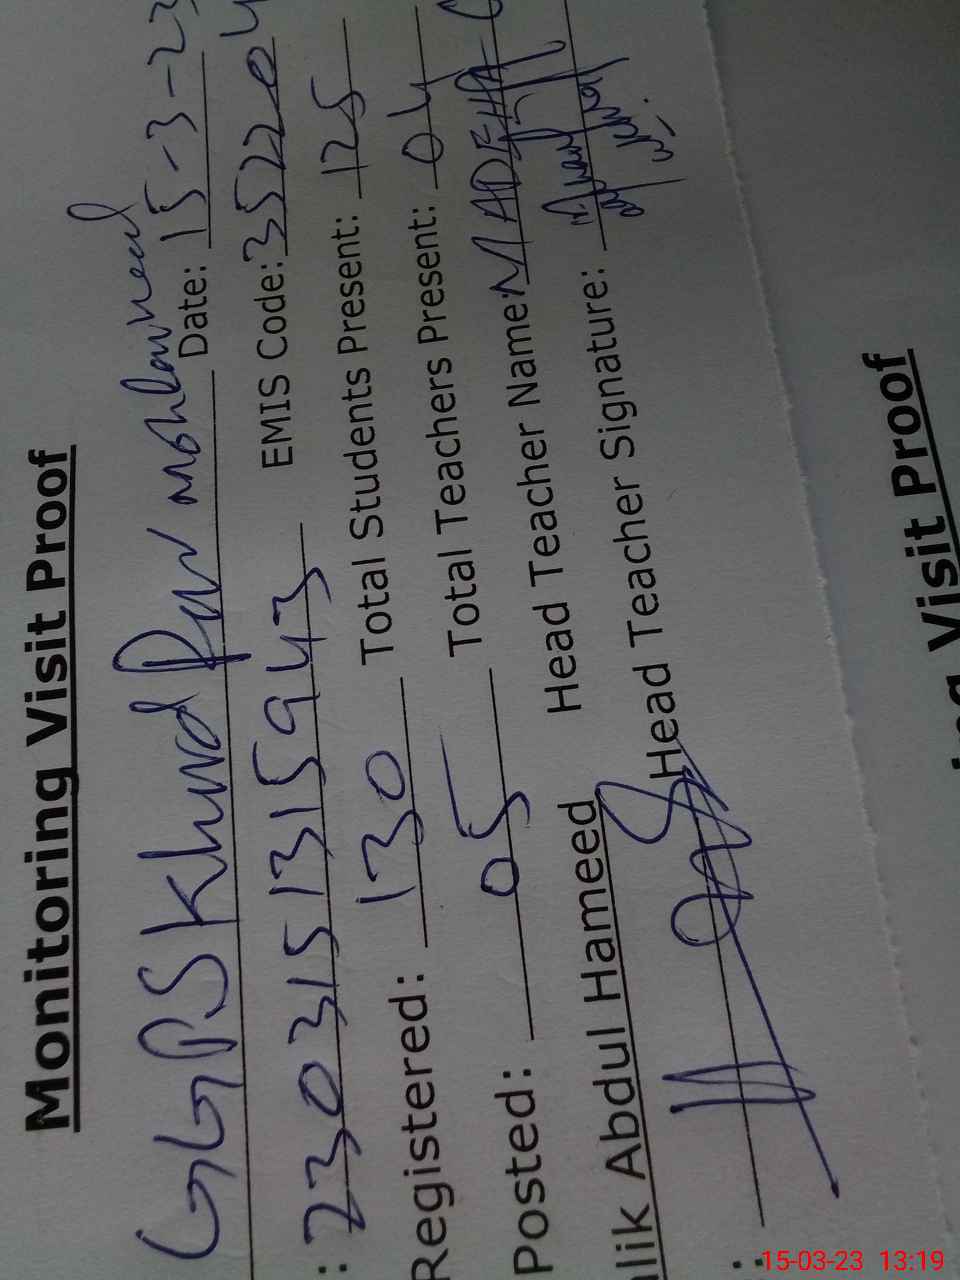 Monitoring Visit Proof
GGPS Khurd Date: 15-3-23
: 2303151315943 EMIS Code: 352204
Registered: 130 Total Students Present: 125
Posted: 05 Total Teachers Present: 04
alik Abdul Hameed Head Teacher Name: MADEHA
: Head Teacher Signature:
ing Visit Proof
15-03-23 13:19